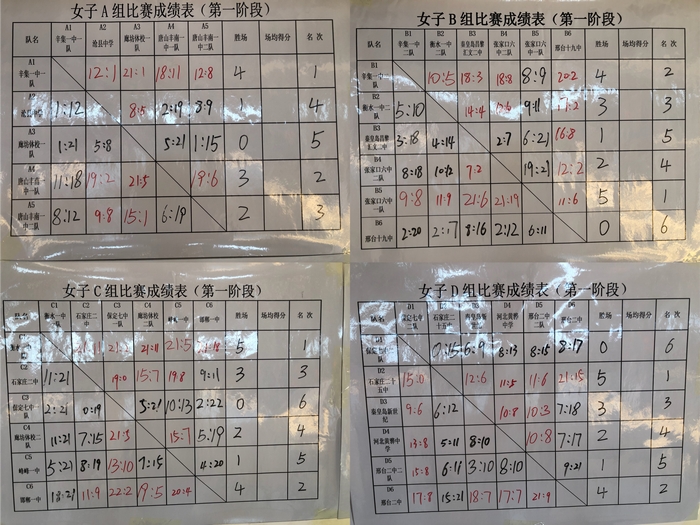 女子A组比赛成绩表（第一阶段）
队名 A1 辛集一中一队 A2 沧县中学 A3 廊坊体校一队 A4 唐山丰南一中一队 A5 唐山丰南一中二队 胜场 场均得分 名次
A1 辛集一中一队 12:1 21:1 18:11 12:8 4 1
A2 1:12 8:5 2:19 8:9 1 4
A3 廊坊体校一队 1:21 5:8 5:21 1:15 0 5
A4 唐山丰南一中一队 11:18 19:2 21:5 19:6 3 2
A5 唐山丰南一中二队 8:12 9:8 15:1 6:19 2 3
女子B组比赛成绩表（第一阶段）
队名 B1 辛集一中二队 B2 衡水一中二队 B3 秦皇岛昌黎汇文二中 B4 张家口六中二队 B5 张家口六中一队 B6 邢台十九中 胜场 场均得分 名次
B1 辛集一中二队 10:5 18:3 18:8 8:9 20:2 4 2
B2 衡水一中二队 5:10 14:4 9:11 17:2 3 3
B3 秦皇岛昌黎汇文二中 3:18 4:14 2:7 6:21 16:8 1 5
B4 张家口六中二队 8:18 7:2 19:21 12:2 2 4
B5 张家口六中一队 9:8 11:9 21:6 21:19 11:6 5 1
B6 邢台十九中 2:20 2:17 8:16 2:12 6:11 0 6
女子C组比赛成绩表（第一阶段）
队名 C1 衡水一中一队 C2 石家庄二中 C3 保定七中一队 C4 廊坊体校二队 C5 峰峰一中 C6 邯郸一中 胜场 场均得分 名次
21:11 21:2 21:11 21:5 5 1
石家庄二中 11:21 19:0 15:7 19:8 9:11 3 3
C3 保定七中一队 2:21 0:19 5:21 10:13 2:22 0 6
C4 廊坊体校二队 11:21 7:15 21:5 15:7 5:19 2 4
C5 峰峰一中 5:21 8:19 13:10 7:15 4:20 1 5
C6 邯郸一中 11:9 22:2 19:5 20:4 4 2
女子D组比赛成绩表（第一阶段）
队名 D1 保定七中二队 石家庄二十五中 D3 秦皇岛新世纪 D4 河北黄骅中学 D5 邢台二中二队 D6 邢台二中 胜场 场均得分 名次
D1 保定七中二队 0:15 6:9 8:13 8:15 8:17 0 6
D2 石家庄二十五中 15:0 12:6 11:5 11:6 21:15 5 1
D3 秦皇岛新世纪 9:6 6:12 10:8 10:3 7:18 3 3
D4 河北黄骅中学 13:8 5:11 8:10 10:8 7:17 2 4
D5 邢台二中二队 15:8 6:11 3:10 8:10 9:21 1 5
D6 邢台二中 17:8 15:21 18:7 17:7 21:9 4 2